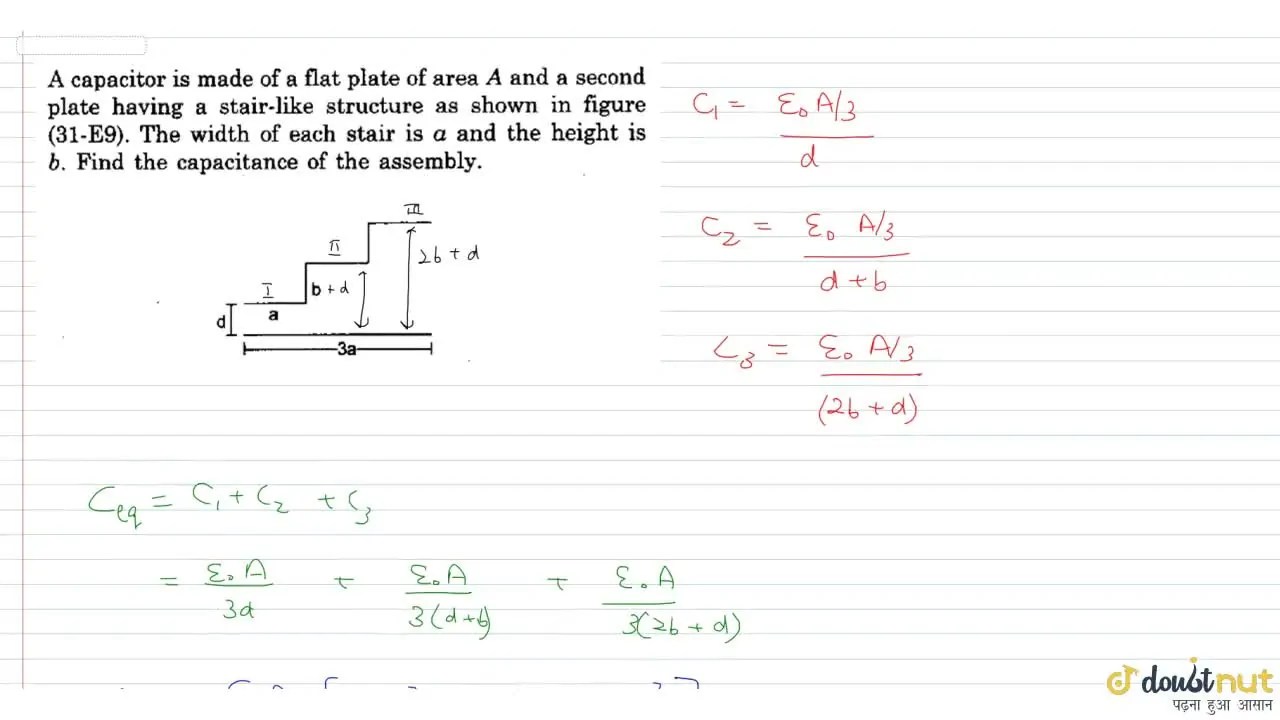 A capacitor is made of a flat plate of area A and a second
plate having a stair-like structure as shown in figure
(31-E9). The width of each stair is a and the height is
b. Find the capacitance of the assembly.
III
II
2b + d
I
b + d
d
a
3a
C₁ = ε₀ A/3
d
C₂ = ε₀ A/3
d + b
C₃ = ε₀ A/3
(2b + d)
Ceq = C₁ + C₂ + C₃
= ε₀ A + ε₀ A + ε₀ A
3d 3(d+b) 3(2b + d)
doubtnut
पढ़ना हुआ आसान